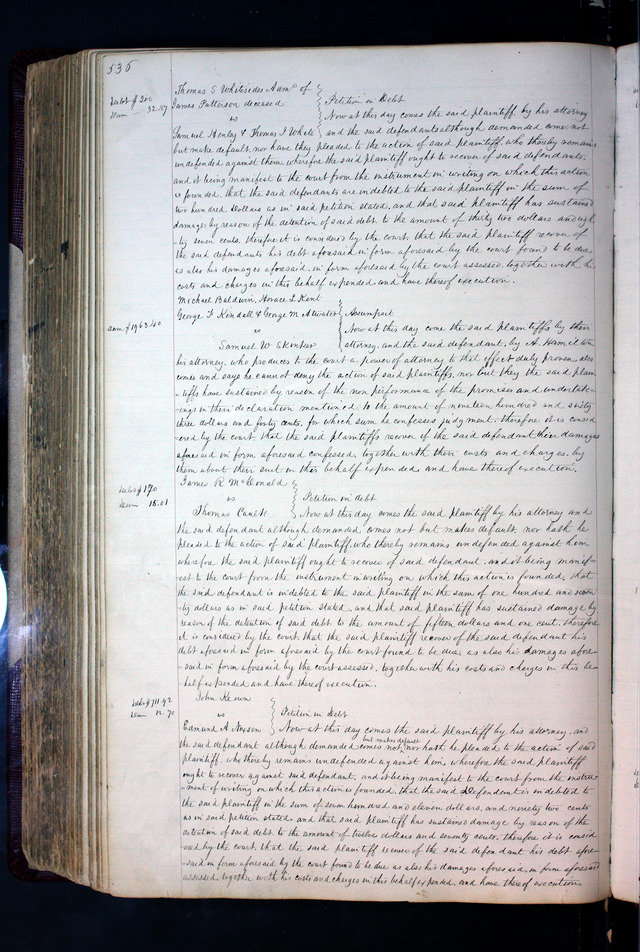 536
Thomas S Whitesides Adm. of
Debt $200
Dam 32.87
James Patterson deceased
Petition in Debt
vs
Now at this day comes the said plaintiff, by his attorney
Samuel Henly & Thomas J White
and the said defendants although demanded comes not
but make default, nor have they pleaded to the action of said plaintiff, who thereby remains
undefended against them, wherefore the said plaintiff ought to recover of said defendants,
and it being manifest to the court from the instrument in writing on which this action
is founded, that the said defendants are indebted to the said plaintiff in the sum of
two hundred dollars as in said petition stated, and that said plaintiff has sustained
damage by reason of the detention of said debt to the amount of thirty two dollars and eigh
-ty seven cents, therefore it is considered by the court, that the said plaintiff recover of
the said defendants his debt aforesaid in form aforesaid by the court found to be due
as also his damages aforesaid, in form aforesaid by the court assessed, together with his
costs and charges in this behalf expended, and have thereof execution.
Michael Baldwin, Horace L Kent
George F Kendall & George M Atwater
Assumpsit
Dam $1963.40
vs
Now at this day come the said plaintiffs by their
Samuel W Skonker
attorney, and the said defendant, by A. Hamilton
his attorney, who produces to the court a power of attorney to that effect duly proven, also
comes and says he cannot deny the action of said plaintiffs, nor but they the said plain
-tiffs have sustained by reason of the non performance of the promises and undertak-
-ings in their declaration mentioned to the amount of nineteen hundred and sixty
three dollars and forty cents, for which sum he confesses judgment, therefore it is consid
ered by the court, that the said plaintiffs recover of the said defendant their damages
aforesaid in form aforesaid confessed, together with their costs and charges, by
them about their suit in this behalf expended and have thereof execution.
James R McDonald
Debt $170
Dam 15.01
vs
Petition in debt
Thomas
Now at this day comes the said plaintiff by his attorney and
the said defendant although demanded comes not but makes default, nor hath he
pleaded to the action of said plaintiff, who thereby remains undefended against him
wherefore the said plaintiff ought to recover of said defendant, and it being manif-
est to the court from the instrument in writing on which this action is founded, that
the said defendant is indebted to the said plaintiff in the sum of one hundred and seven
ty dollars as in said petition stated, and that said plaintiff has sustained damage by
reason of the detention of said debt to the amount of fifteen dollars and one cent, therefore
it is considered by the court, that the said plaintiff recover of the said defendant his
debt aforesaid in form aforesaid by the court found to be due, as also his damages afore-
said in form aforesaid by the court assessed, together with his costs and charges in this be-
half expended and have thereof execution.
John Keown
Debt $711.92
Dam 12.70
vs
Petition in Debt
Edmund A
Now at this day comes the said plaintiff by his attorney, and
but makes default
the said defendant although demanded comes not, nor hath he pleaded to the action of said
plaintiff, who thereby remains undefended against him, wherefore the said plaintiff
ought to recover against said defendant, and it being manifest to the court from the instru-
-ment of writing on which this action is founded, that the said defendant is indebted to
the said plaintiff in the sum of seven hundred and eleven dollars, and ninety two cents
as in said petition stated, and that said plaintiff has sustained damage by reason of the
detention of said debt to the amount of twelve dollars and seventy cents, therefore it is consid
-ered by the court, that the said plaintiff recover of the said defendant his debt afore-
-said in form aforesaid by the court found to be due as also his damages aforesaid, in form aforesaid
assessed, together with his costs and charges in this behalf expended, and have thereof execution.